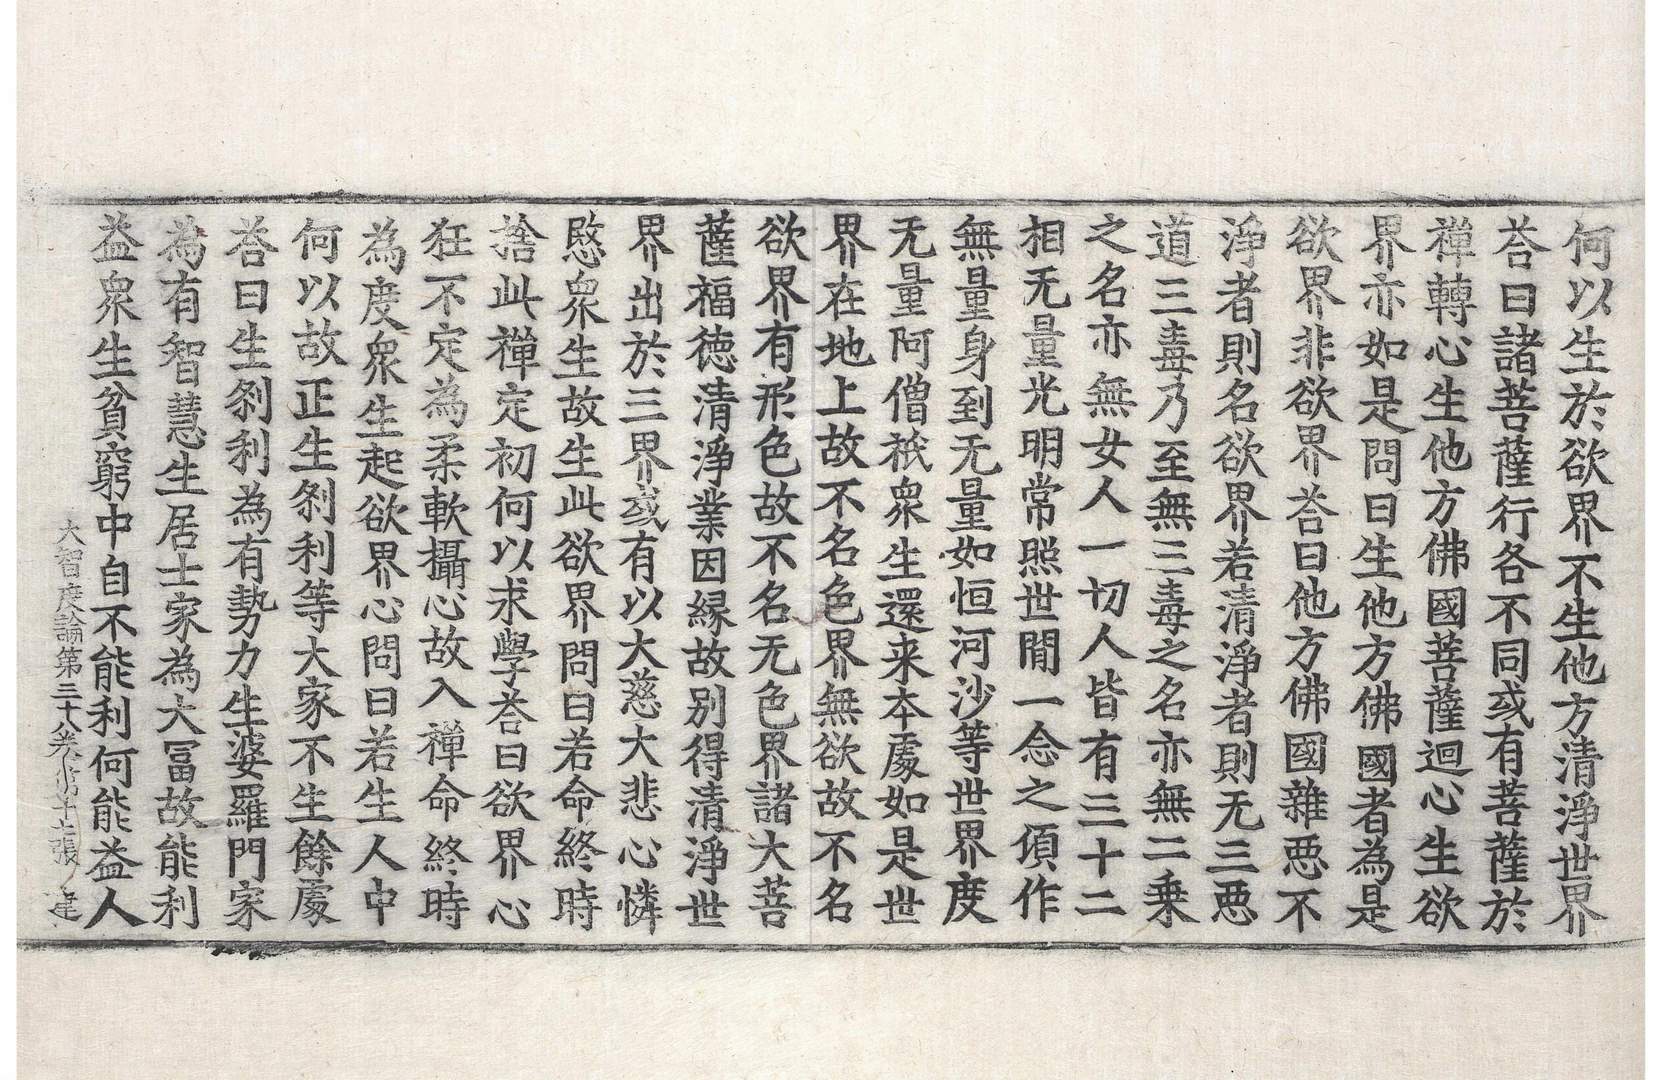 何以生於欲界不生他方清淨世界
荅曰諸菩薩行各不同或有菩薩於
禪轉心生他方佛國菩薩迴心生欲
界亦如是問曰生他方佛國者為是
欲界非欲界荅曰他方佛國雜惡不
淨者則名欲界若清淨者則无三惡
道三毒乃至無三毒之名亦無二乗
之名亦無女人一切人皆有三十二
相无量光明常照世閒一念之頃作
無量身到无量如恒河沙等世界度
无量阿僧祇衆生還来本處如是世
界在地上故不名色界無欲故不名
欲界有形色故不名无色界諸大菩
薩福德清淨業因縁故别得清淨世
界出於三界或有以大慈大悲心憐
愍衆生故生此欲界問曰若命終時
捨此禪定初何以求學荅曰欲界心
狂不定為柔軟攝心故入禪命終時
為度衆生起欲界心問曰若生人中
何以故正生刹利等大家不生餘處
荅曰生刹利為有勢力生婆羅門家
為有智慧生居士家為大冨故能利
益衆生貧窮中自不能利何能益人
大智度論第三十八卷 第十張 建